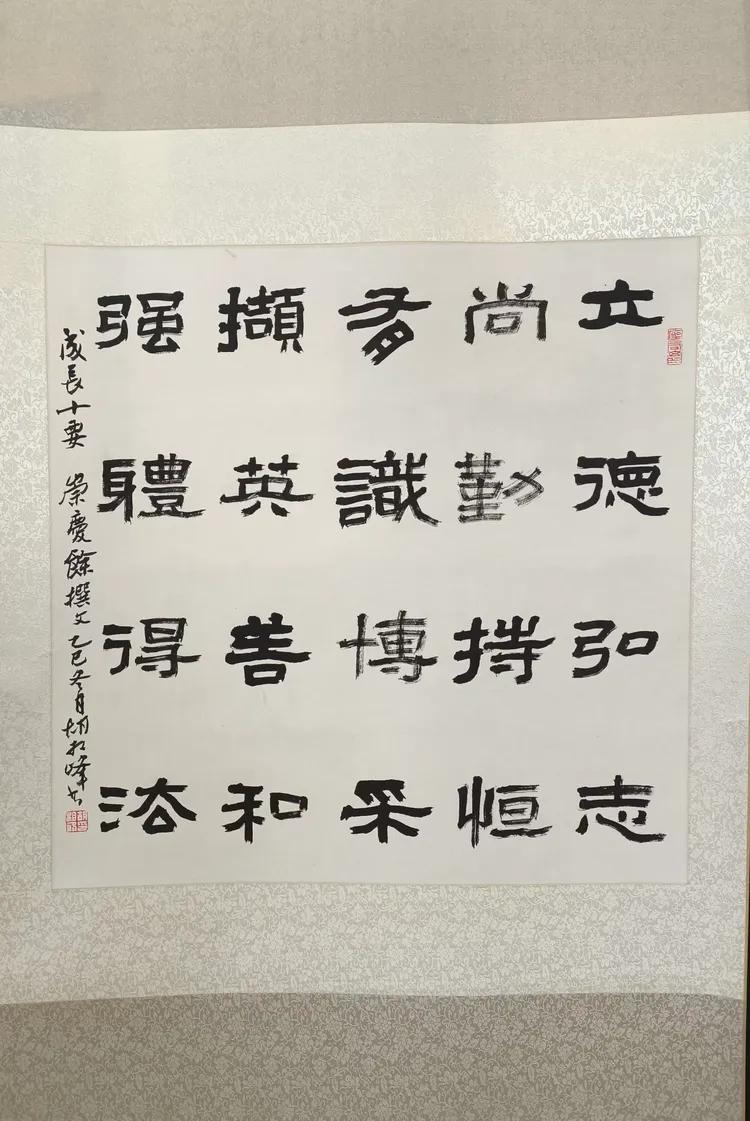 立德弘志
尚勤持恒
多識博采
擷英善和
强體得法
成長十要 崇慶餘撰文 乙巳冬月 胡